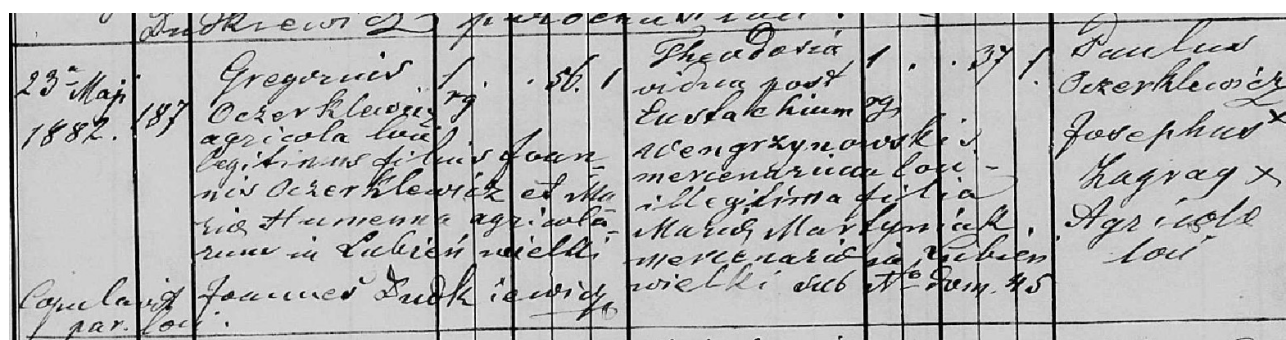 Dudkiewicz parochus loci.
23a Maji
1882.
187
Gregorius
Oczerklewicz
agricola loci
legitimus filius Joan-
nis Oczerklewicz et Ma-
riæ Humenna agricola-
rum in Lubień wielki
1 rg . . 56. 1
Theodosia
vidua post
Eustachium
Wengrzynowski
mercenaria loci -
illegitima filia
Mariæ Martyniak,
mercenariæ in Lubień
wielki sub No dom. 45
1 rg . . 37 1.
Paulus
Oczerklewicz x
Josephus
Zagrag x
Agricolæ
loci
Copulavit Joannes Dudkiewicz
par. loci.